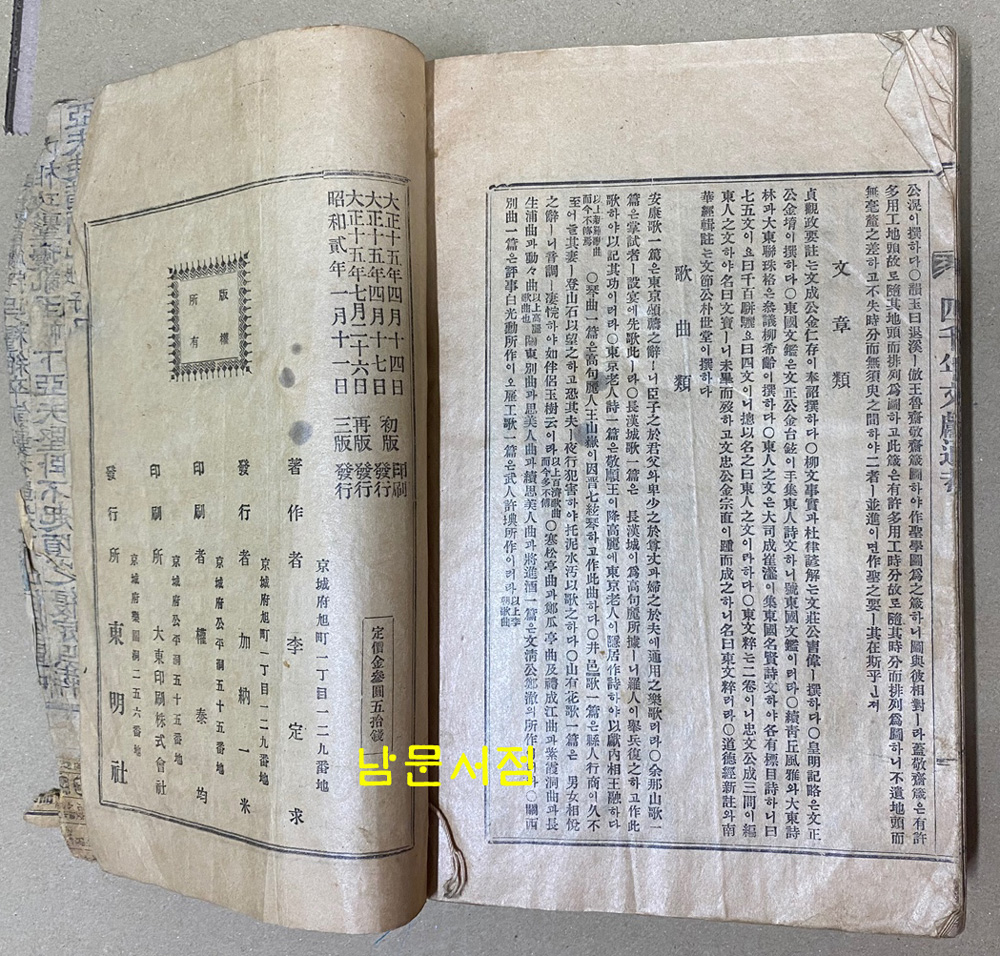 四千年文獻通考
公滉이撰하다○韻玉曰退溪ㅣ倣王魯齋敬齋箴圖하야作聖學圖爲之箴하니圖與彼相對ㅣ라蓋敬齋箴은有許
多用工地頭故로隨其地頭而排列爲圖하고此箴은有許多用工時分故로隨其時分而排列爲圖하니不遺地頭而
無毫釐之差하고不失時分而無須臾之間하야二者ㅣ並進이면作聖之要ㅣ其在斯乎ㅣㄴ져
文章類
貞觀政要註는文成公金仁存이奉詔撰하다○柳文事實과杜律諺解는文莊公曺偉ㅣ撰하다○皇明記略은文正
公金堉이撰하다○東國文鑑은文正公金台鉉이手集東人詩文하니號東國文鑑이러라○續靑丘風雅와大東詩
林과大東聯珠格은叅議柳希齡이撰하다○東人之文은大司成崔瀣이集東國名賢詩文하야各有標目詩하니曰
七五文이요曰千百騈儷요曰四文이니摠以名之曰東人之文이라하다○東文粹는二卷이니忠文公成三問이編
東人之文하야名曰文寶ㅣ니未畢而歿하고文忠公金宗直이踵而成之하니名曰東文粹러라○道德經新註와南
華經輯註는文節公朴世堂이撰하다
歌曲類
安康歌一篇은東京頌禱之辭ㅣ니臣子之於君父와卑少之於尊丈과婦之於夫에通用之樂歌러라○余那山歌一
篇은掌試者ㅣ設宴에先歌此ㅣ라○長漢城歌一篇은 長漢城이爲高句麗所據ㅣ니羅人이擧兵復之하고作此
歌하야以記其功이러라○東京老人詩一篇은敬順王이降高麗에東京老人이隱居作詩하야以獻內相王融하다
以上新羅歌曲而今不傳焉 ○琴曲一篇은高句麗人王山嶽이因晋七絃琴하고作此曲하다○井邑歌一篇은縣人行商이久不
至어늘其妻ㅣ登山石以望之하고恐其夫ㅣ夜行犯害하야托泥水汚以歌之하다○山有花歌一篇은 男女相悅
之辭ㅣ니音調ㅣ凄惋하야如伴侶玉樹云이라以上百濟歌曲而今多不傳○寒松亭曲과鄭瓜亭曲及禮成江曲과紫霞洞曲과長
生浦曲과動々曲以上高麗歌曲也 關東別曲과思美人曲과續思美人曲과將進酒一篇은文淸公鄭澈의所作이라○關西
別曲一篇은評事白光勳所作이오雇工歌一篇은武人許㙉所作이러라以上李朝歌曲
大正十五年四月十四日 初版印刷
大正十五年四月十七日 初版發行
大正十五年七月二十六日 再版發行
昭和貳年一月十一日 三版發行
版權所有
定價金參圓五拾錢
京城府旭町二丁目一二九番地
著作者 李定求
京城府旭町一丁目一二九番地
發行者 加納一米
京城府公平洞五十五番地
印刷者 權泰均
京城府公平洞五十五番地
印刷所 大東印刷株式會社
京城府樂園洞二五六番地
發行所 東明社
남문서점